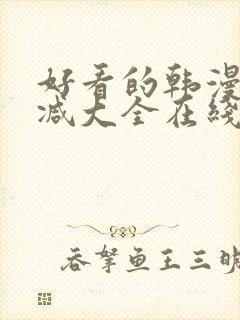 好看的韩漫
减大全在线
吞拏鱼王三明